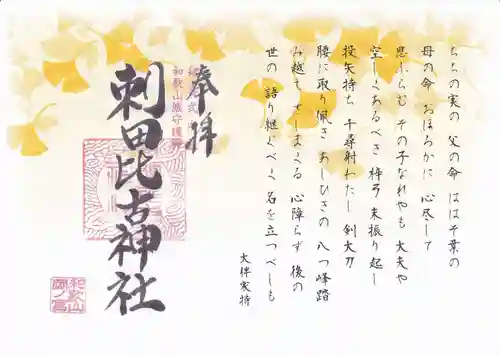 ちちの実の 父の命 ははそ葉の
母の命 おほろかに 心尽して
思ふらむ その子なれやも 大夫や
空しくあるべき 梓弓 末振り起し
投矢持ち 千尋射わたし 剣大刀
腰に取り佩き あしひきの 八つ峰踏
み越え さしまくる 心障らず 後の
世の 語り継ぐべく 名を立つべしも
大伴家持
奉拝
和歌山城守護神
刺田比古神社
和歌山
岡ノ宮